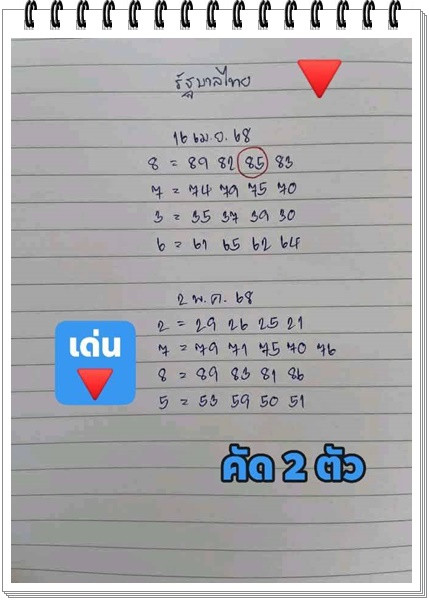 รัฐบาลไทย
16 เม.ย. 68
8 = 89 82 85 83
7 = 74 79 75 70
3 = 35 37 39 30
6 = 61 65 62 64
2 พ.ค. 68
2 = 29 26 25 21
เด่น
7 = 79 71 75 70 76
8 = 89 83 81 86
5 = 53 59 50 51
คัด 2 ตัว